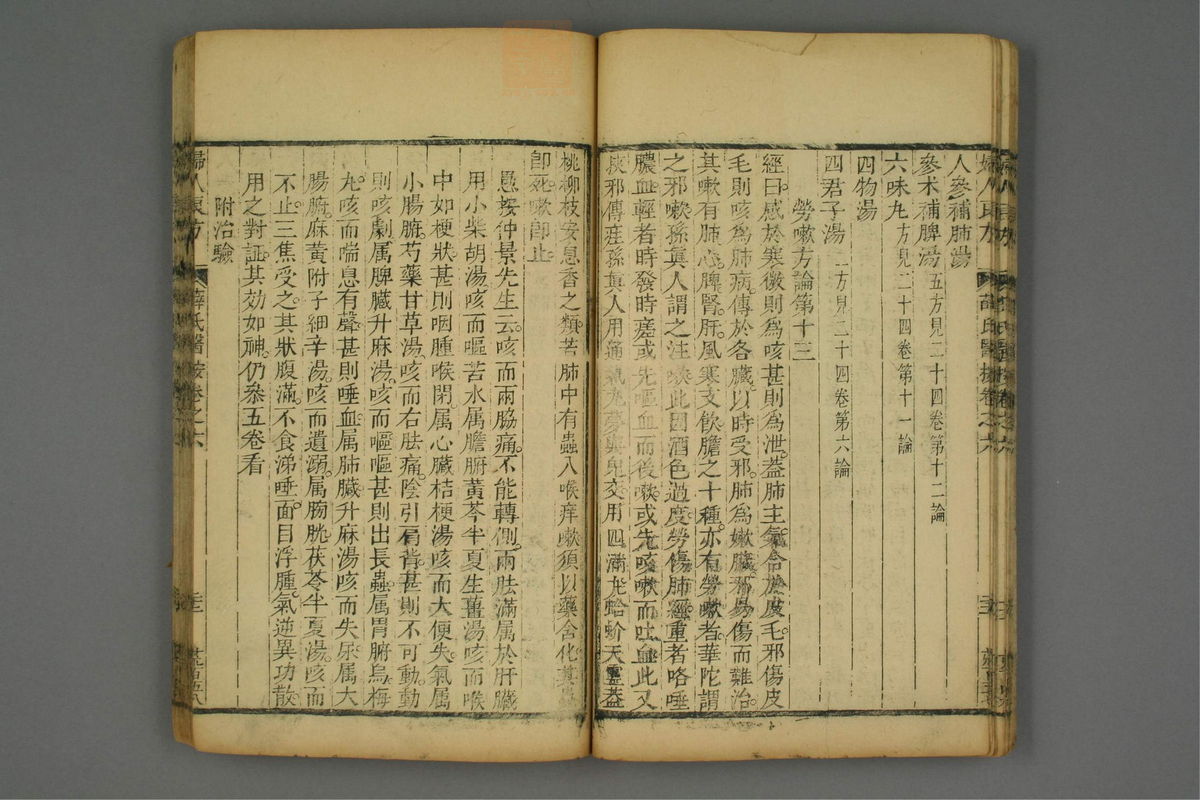 人參補肺湯
參术補脾湯 五方見二十四卷第十二論
六味丸 方見二十四卷第十一論
四物湯
四君子湯 二方見二十四卷第六論
勞嗽方論第十三
經曰感於寒微則為咳甚則為泄蓋肺主氣合於皮毛邪傷皮
毛則咳為肺病傳於各臟以時受邪肺為嫩臟邪易傷而難治
其嗽有肺心脾腎肝風寒支飲膽之十種亦有勞嗽者華陀謂
之邪嗽孫眞人謂之注嗽此因酒色過度勞傷肺經重者咯唾
膿血輕者時發時瘥或先嘔血而後嗽或先咳嗽而吐血此又
挾邪傳疰孫眞人用通氣丸夢與鬼交用四滿丸蛤蚧天靈蓋
桃柳枝安息香之類苦肺中有蟲入喉痒嗽須以藥含化其蟲
卽死嗽卽止
愚按仲景先生云咳而兩脇痛不能轉側兩胠滿属於肝臟
用小柴胡湯咳而嘔苦水属膽腑黃芩半夏生薑湯咳而喉
中如梗狀甚則咽腫喉閉属心臟桔梗湯咳而大便失氣属
小腸腑芍藥甘草湯咳而右胠痛陰引肩背甚則不可動動
則咳劇属脾臟升麻湯咳而嘔嘔甚則出長蟲属胃腑烏梅
丸咳而喘息有聲甚則唾血属肺臟升麻湯咳而失尿属大
腸腑麻黃附子細辛湯咳而遺溺属膀胱茯苓半夏湯咳而
不止三焦受之其狀腹滿不食涕唾面目浮腫氣逆異功散
用之對証其効如神仍叅五卷看
附治驗
婦人良方 薛氏醫按卷之六